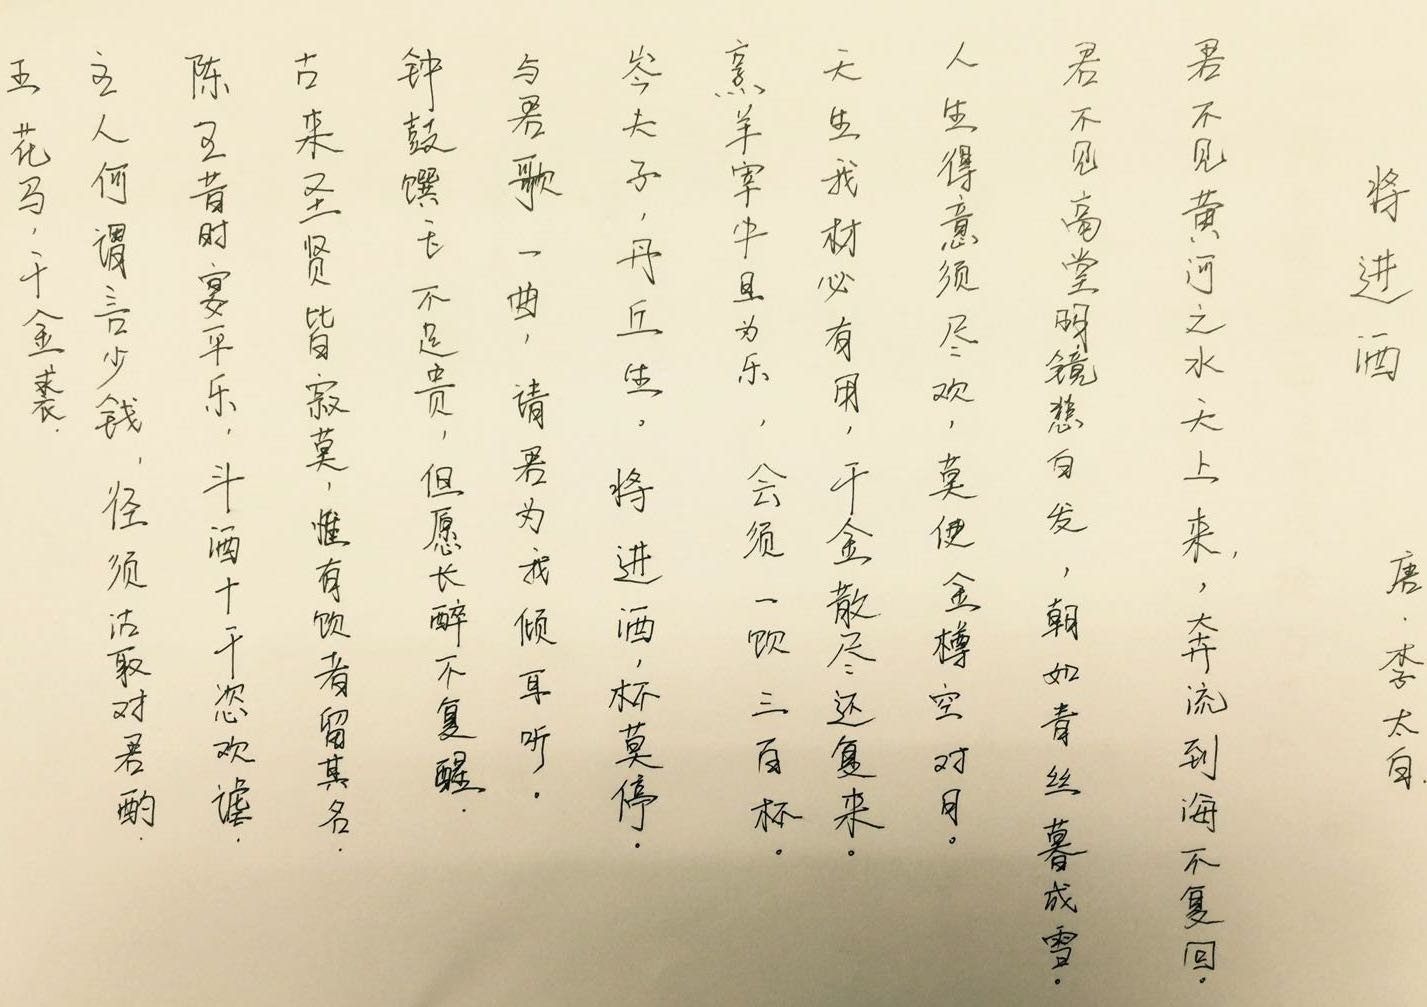 将进酒
唐·李太白.
君不见黄河之水天上来，奔流到海不复回。
君不见高堂明镜悲白发，朝如青丝暮成雪。
人生得意须尽欢，莫使金樽空对月。
天生我材必有用，千金散尽还复来。
烹羊宰牛且为乐，会须一饮三百杯。
岑夫子，丹丘生。将进酒，杯莫停。
与君歌一曲，请君为我倾耳听。
钟鼓馔玉不足贵，但愿长醉不复醒.
古来圣贤皆寂莫，惟有饮者留其名.
陈王昔时宴平乐，斗酒十千恣欢谑.
主人何谓言少钱，径须沽取对君酌.
五花马，千金裘.